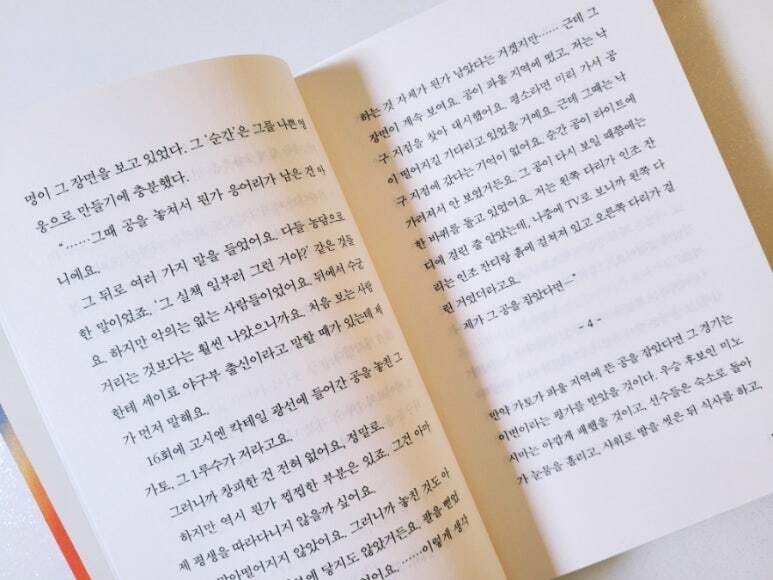 명이 그 장면을 보고 있었다. 그 '순간'은 그를 나쁜 영
웅으로 만들기에 충분했다.
"……그때 공을 놓쳐서 뭔가 응어리가 남은 건 아
니에요.
그 뒤로 여러 가지 말을 들었어요. 다들 농담으로
한 말이었죠. '그 실책 일부러 그런 거야?' 같은 것들
요. 하지만 악의는 없는 사람들이었어요. 뒤에서 수군
거리는 것보다는 훨씬 나았으니까요. 처음 보는 사람
한테 세이료 야구부 출신이라고 말할 때가 있는데 제
가 먼저 말해요.
16회에 고시엔 칵테일 광선에 들어간 공을 놓친 그
가토, 그 1루수가 저라고요.
그러니까 창피한 건 전혀 없어요. 정말로.
하지만 역시 뭔가 찝찝한 부분은 있죠. 그건 아마
제 평생을 따라다니지 않을까 싶어요.
떨어지지 않았어요. 그러니까 놓친 것도 아
에 닿지도 않았거든요. 팔을 뻗었
어요. ……이렇게 생각
하는 것 자체가 뭔가 남았다는 거겠지만…… 근데 그
장면이 계속 보여요. 공이 파울 지역에 떴고, 저는 낙
구 지점을 찾아 대시했어요. 평소라면 미리 가서 공
이 떨어지길 기다리고 있었을 거예요. 근데 그때는 낙
구 지점에 갔다는 기억이 없어요. 순간 공이 라이트에
가려져서 안 보였거든요. 그 공이 다시 보일 때쯤에는
한 바퀴를 돌고 있었어요. 저는 왼쪽 다리가 인조 잔
디에 걸린 줄 알았는데, 나중에 TV로 보니까 왼쪽 다
리는 인조 잔디랑 흙에 걸쳐져 있고 오른쪽 다리가 걸
린 거였더라고요.
제가 그 공을 잡았다면―"
- 4 -
만약 가토가 파울 지역에 뜬 공을 잡았다면 그 경기는
이변이라는 평가를 받았을 것이다. 우승 후보인 미노
시마는 아깝게 패했을 것이고, 선수들은 숙소로 돌아
가 눈물을 흘리고, 샤워로 땀을 씻은 뒤 식사를 하고,